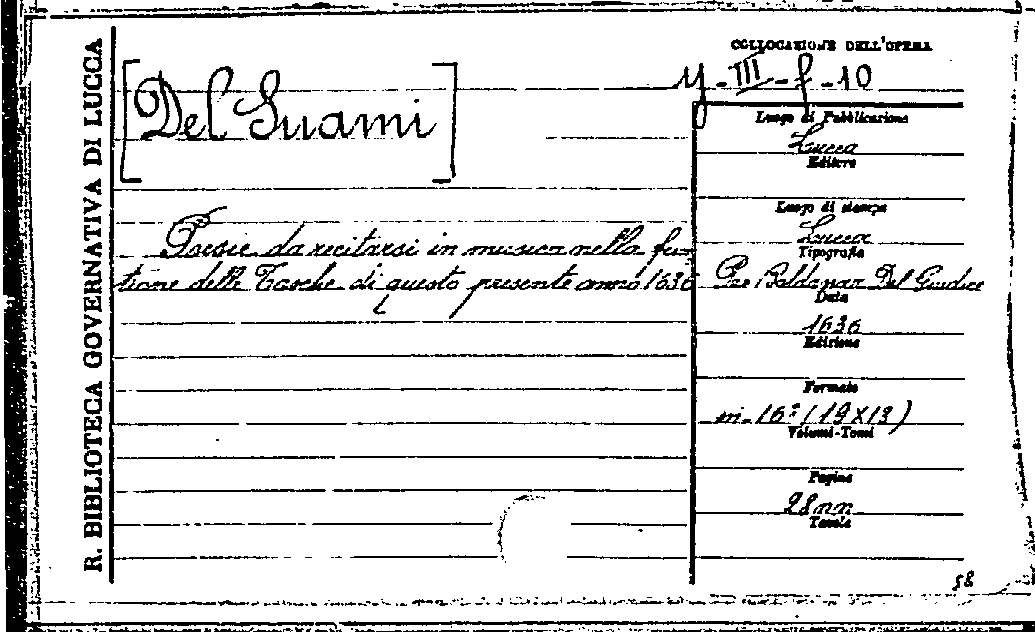 R. BIBLIOTECA GOVERNATIVA DI LUCCA
COLLOCAZIONE DELL'OPERA
y-III-f-10
[Del Guami]
Luogo di Pubblicazione
Lucca
Editore
Luogo di stampa
Lucca
Tipografia
Poesie da recitarsi in musica nella fun
tione delle Tasche di questo presente anno 1636
Pre Baldassar Del Giudice
Data
1636
Edizione
Formato
in-16º (19X13)
Volumi-Tomi
Pagine
28nn
Tavole
58